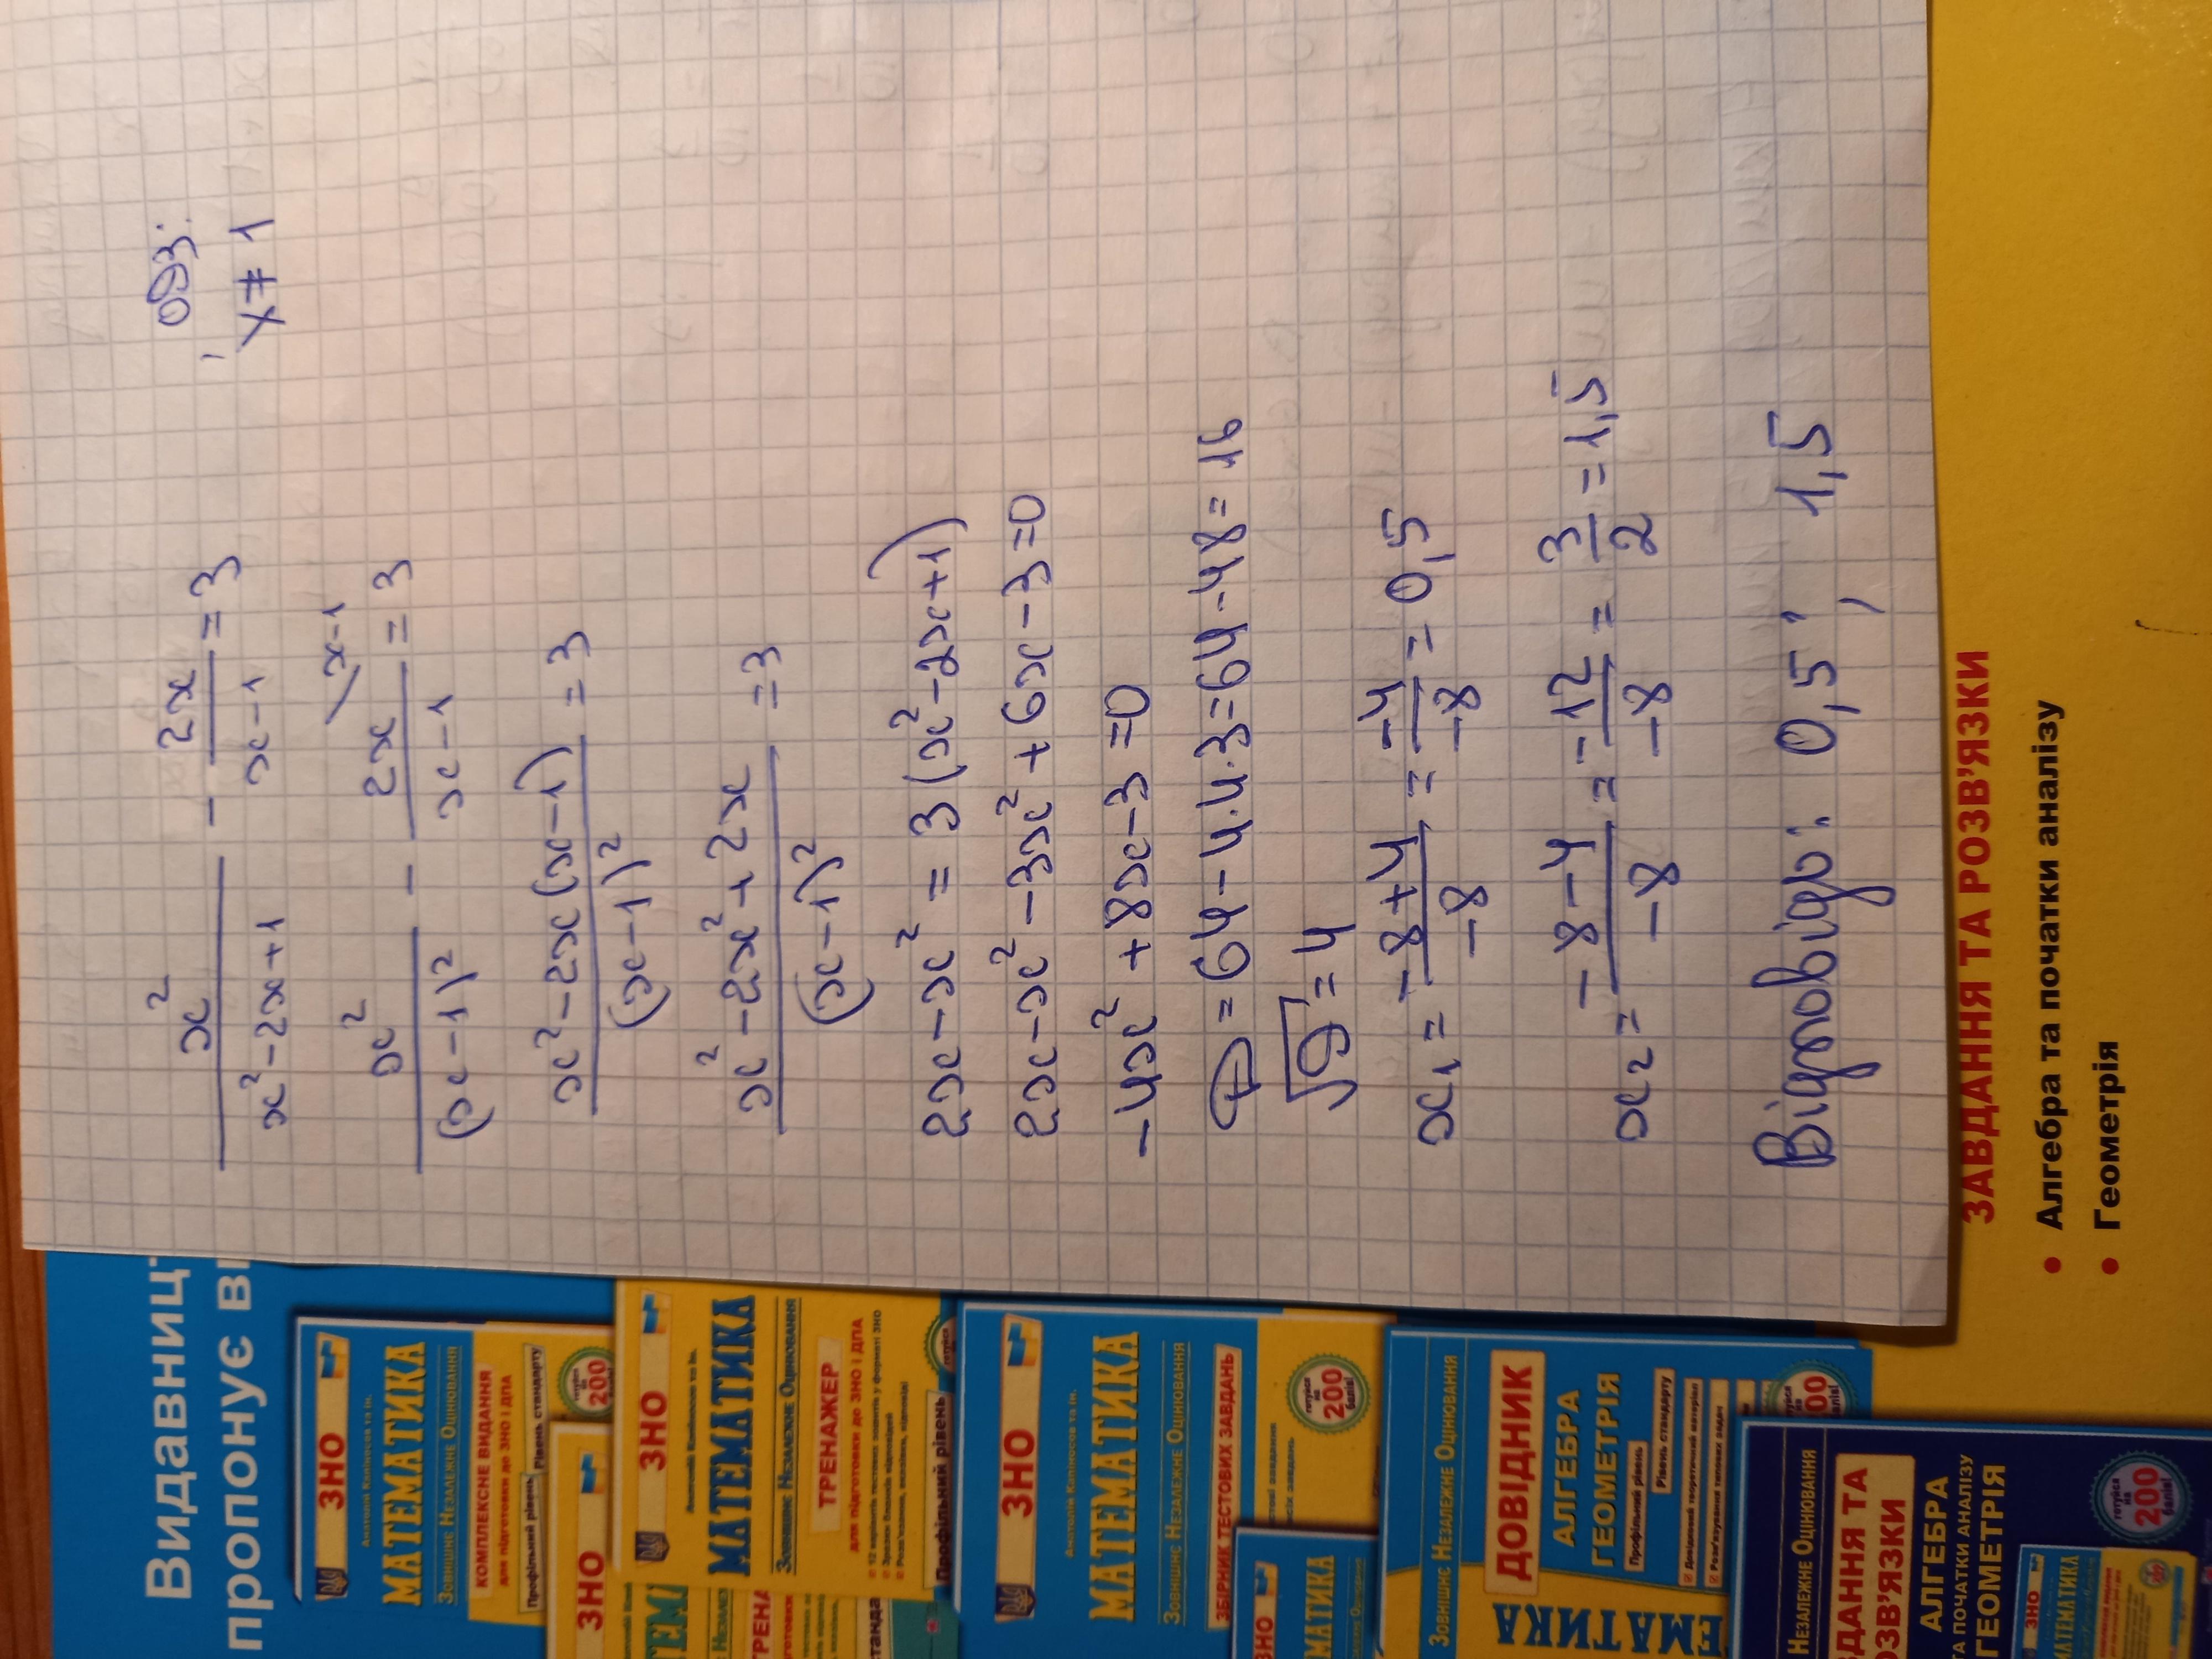 x² / (x² - 2x + 1) - 2x / (x - 1) = 3
ОДЗ:
x ≠ 1
x² / (x - 1)² - 2x / (x - 1) \x-1 = 3
(x² - 2x(x - 1)) / (x - 1)² = 3
(x² - 2x² + 2x) / (x - 1)² = 3
2x - x² = 3(x² - 2x + 1)
2x - x² - 3x² + 6x - 3 = 0
-4x² + 8x - 3 = 0
D = 64 - 4·4·3 = 64 - 48 = 16
√D = 4
x₁ = (-8 + 4) / -8 = -4 / -8 = 0,5
x₂ = (-8 - 4) / -8 = -12 / -8 = 3 / 2 = 1,5
Відповідь: 0,5 ; 1,5
ЗАВДАННЯ ТА РОЗВ'ЯЗКИ
• Алгебра та початки аналізу
• Геометрія
Видавниц
пропонує ви
ЗНО
Анатолій Капіносов та ін.
МАТЕМАТИКА
Зовнішнє Незалежне Оцінювання
КОМПЛЕКСНЕ ВИДАННЯ
для підготовки до ЗНО і ДПА
Профільний рівень
Рівень стандарту
готуйся на 200
ЗНО
ЗНО
МАТЕМАТИКА
Зовнішнє Незалежне Оцінювання
ТРЕНАЖЕР
для підготовки до ЗНО і ДПА
Профільний рівень
ЗНО
Анатолій Капіносов та ін.
МАТЕМАТИКА
Зовнішнє Незалежне Оцінювання
ЗБІРНИК ТЕСТОВИХ ЗАВДАНЬ
готуйся на 200 балів!
ЗНО
МАТИКА
Зовнішнє Незалежне Оцінювання
ДОВІДНИК
АЛГЕБРА
ГЕОМЕТРІЯ
Профільний рівень
Рівень стандарту
ЕМАТИКА
Незалежне Оцінювання
ДАННЯ ТА
ОЗВ'ЯЗКИ
АЛГЕБРА
ТА ПОЧАТКИ АНАЛІЗУ
ГЕОМЕТРІЯ
готуйся на 200 балів!
ЗНО
МАТЕМАТИКА